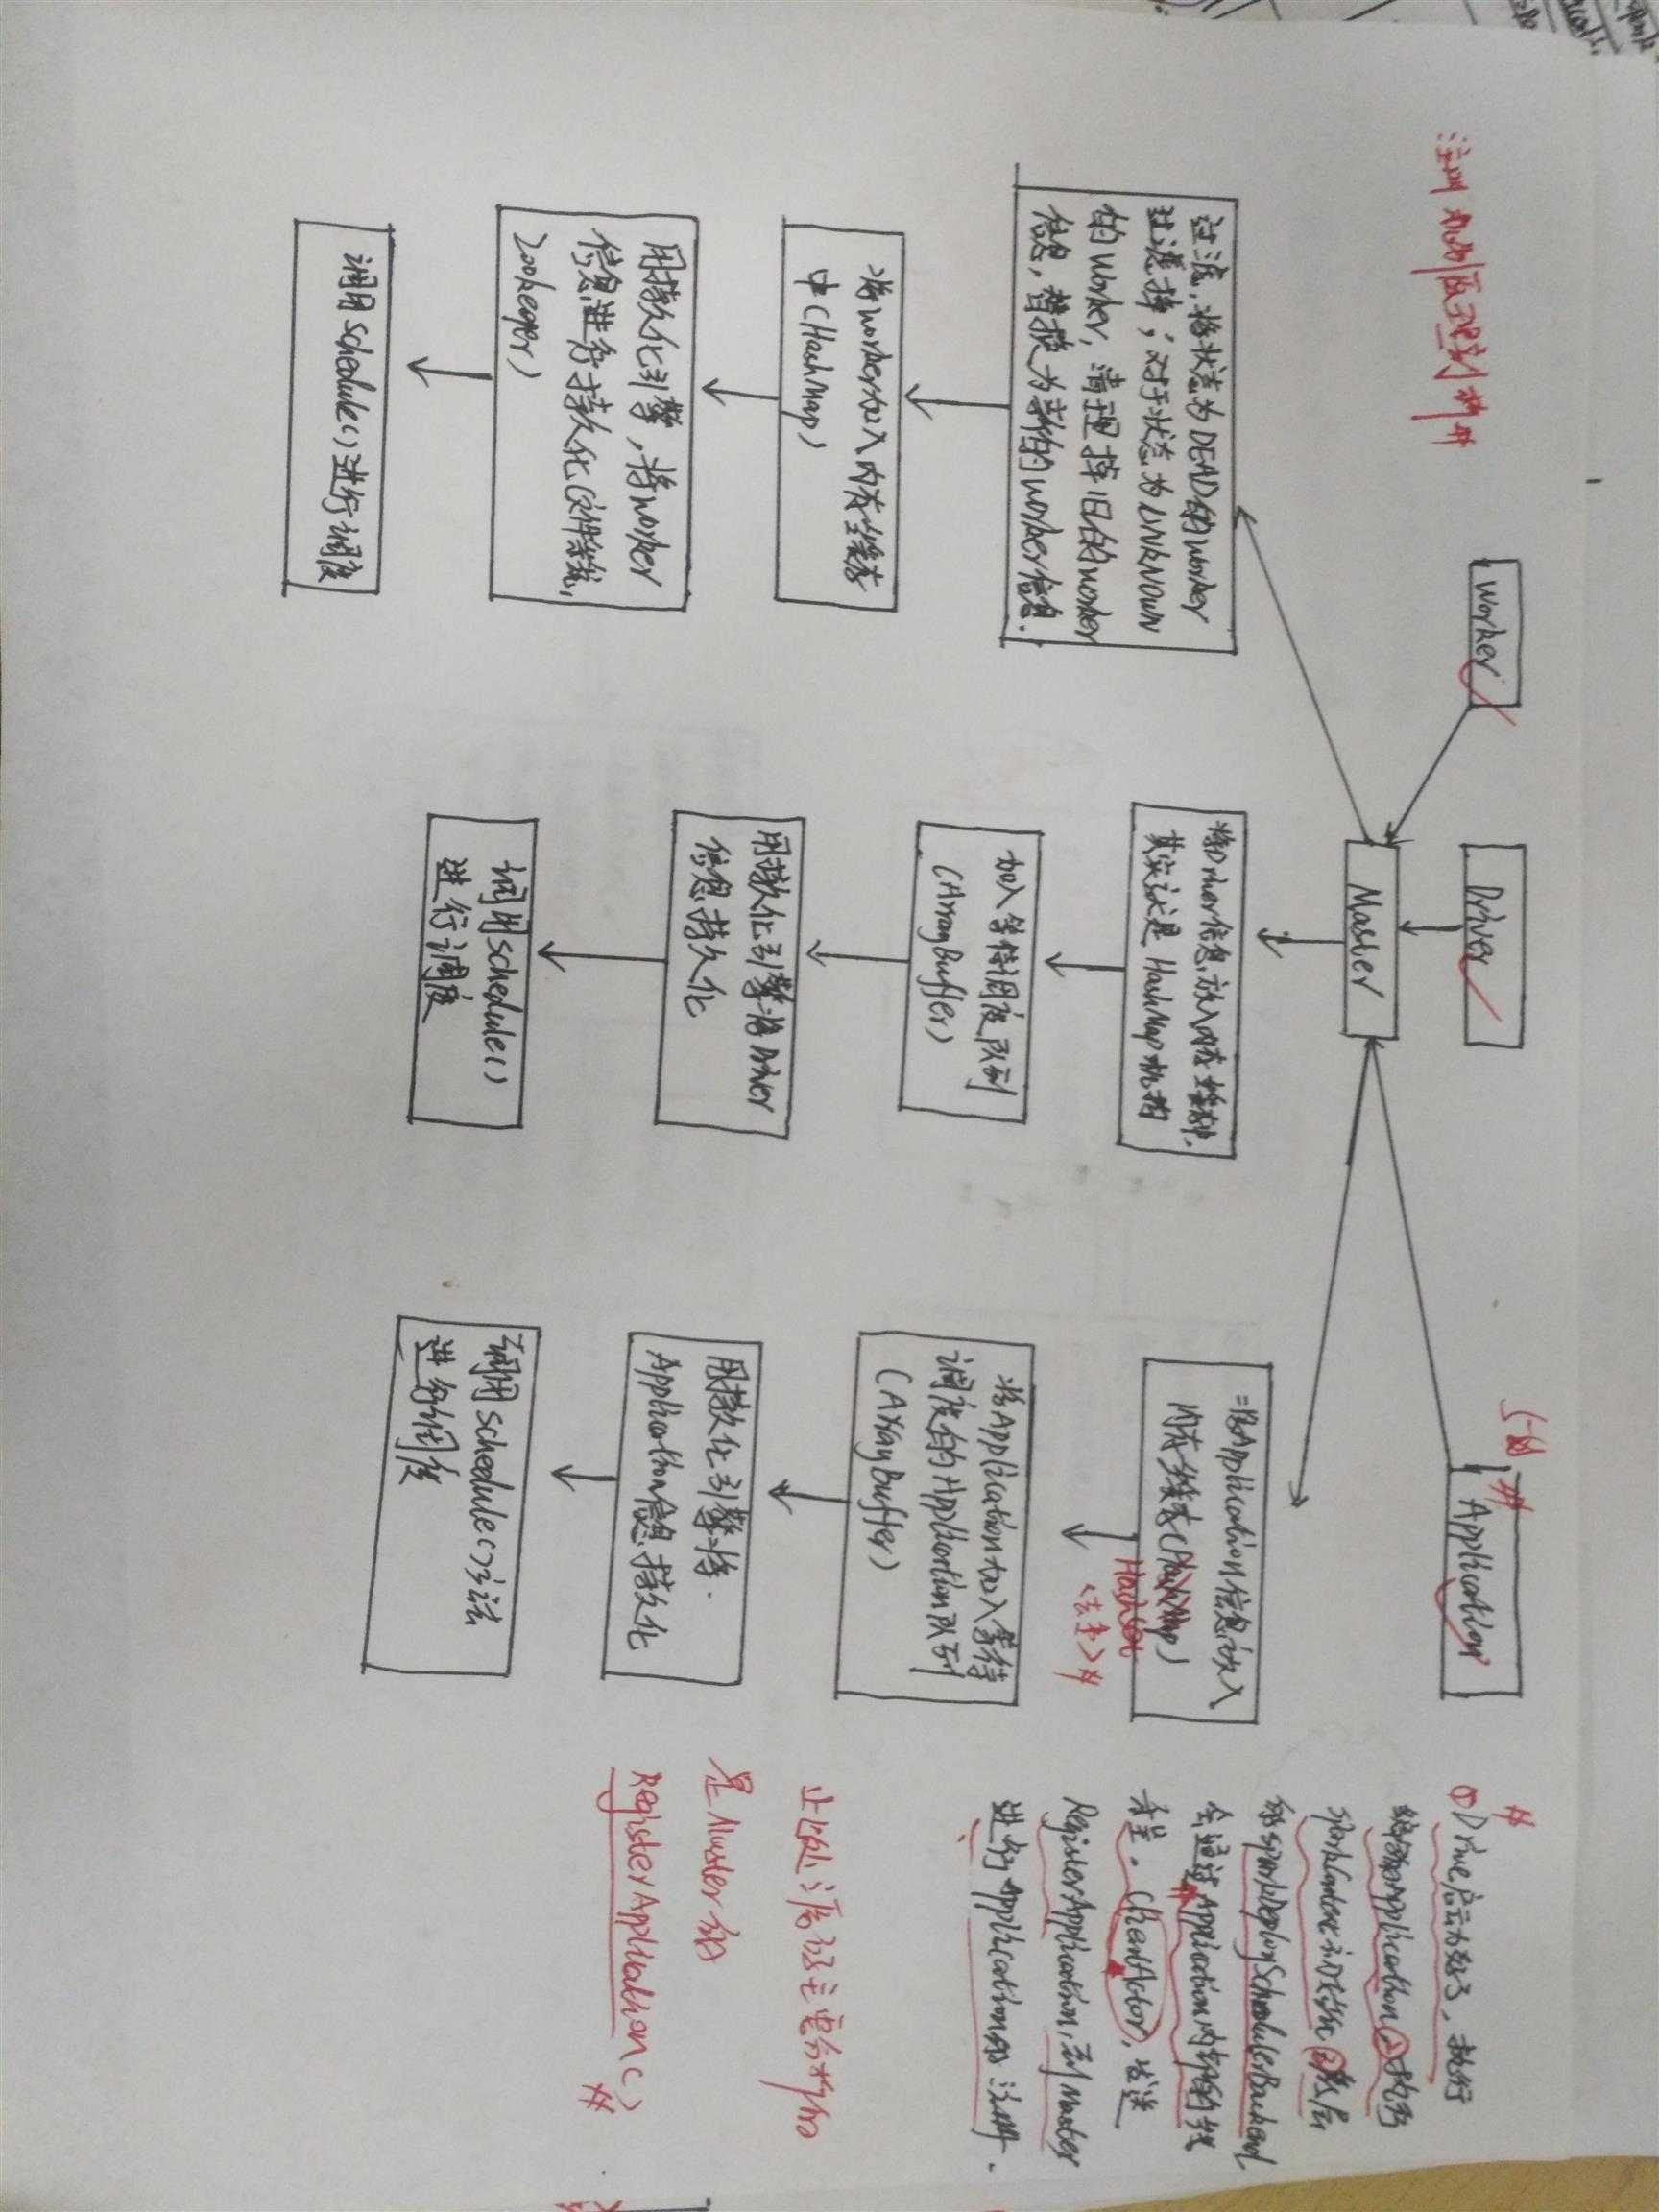 注册机制原理剖析#
Worker
Driver
Application
Master
过滤,将状态为DEAD的worker
过滤掉;对于状态为UNKNOWN
的worker,清理掉旧的worker
信息,替换为新的worker信息.
将worker加入内存缓存
中(HashMap)
用持久化引擎,将worker
信息进行持久化(文件系统,
zookeeper)
调用schedule()进行调度
将Driver信息放入内存缓存中.
其实就是HashMap
加入等待调度队列
(ArrayBuffer)
用持久化引擎将Driver
信息持久化
调用schedule()
进行调度
将Application信息放入
内存缓存(HashMap)
HashSet
(去重)#
将Application加入等待
调度的Application队列
(ArrayBuffer)
用持久化引擎将.
Application信息持久化
调用schedule()方法
进行调度
#
①Driver启动好了,执行
编写的Application②执行
SparkContext初始化③然后
的SparkDeploySchedulerBackend
会通过Application内部的线
程,ClientActor,发送
RegisterApplication,到Master
进行Application的注册.
此处源码主要分析的
是Master的
RegisterApplication()
#